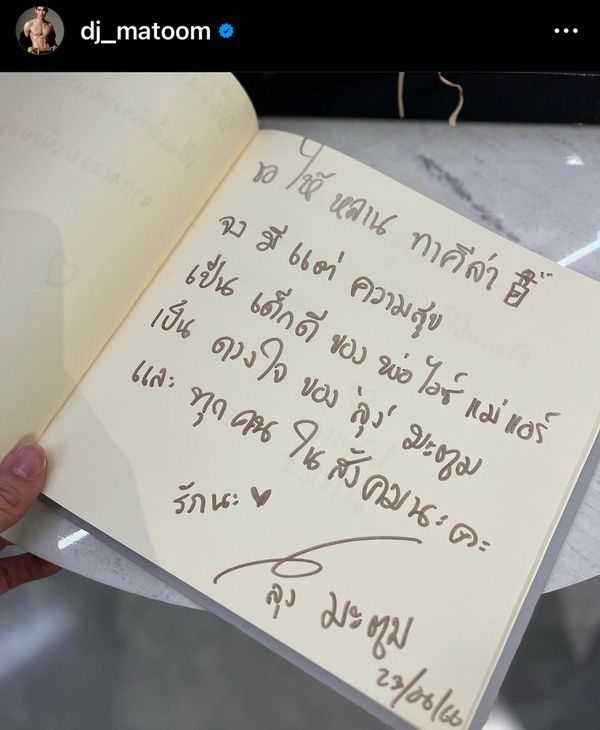 dj_matoom
ขอ ให้ หลาน ทาคีล่า
จง มี แต่ ความสุข
เป็น เด็กดี ของ พ่อ ไอซ์ แม่ แอร์
เป็น ดวงใจ ของ "ลุง" มะตูม
และ ทุก คน ใน สังคมนะคะ
รักนะ
ลุง มะตูม
23/08/66